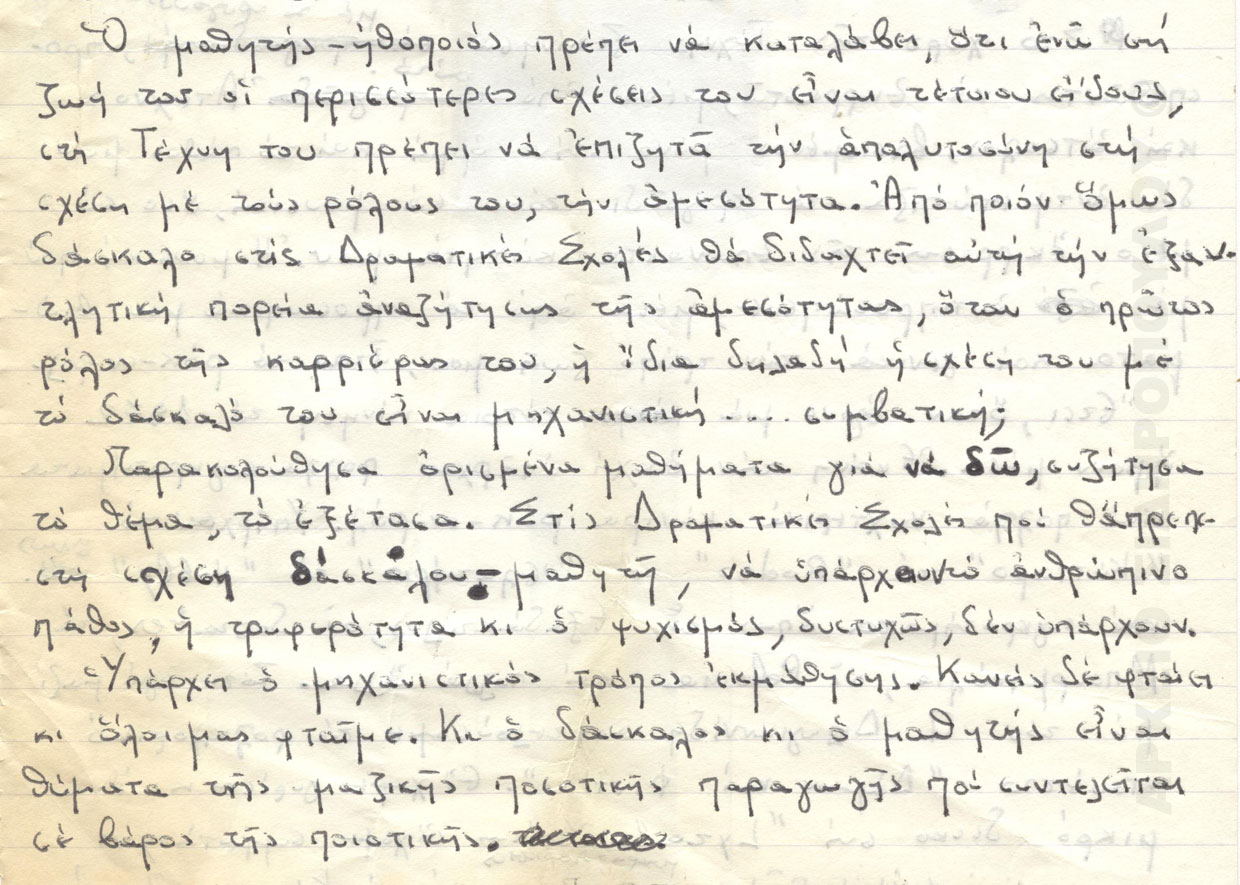 Ὁ μαθητής - ἠθοποιός πρέπει νά καταλάβει, ὅτι ἐνῶ στή
ζωή του οἱ περισσότερες σχέσεις του εἶναι τέτοιου εἴδους,
στή Τέχνη του πρέπει νά ἐπιζητᾶ τήν ἀπαλυτοσύνη στή
σχέση μέ τούς ρόλους του, τήν ἀμεσότητα. Ἀπό ποιόν ὅμως
δάσκαλο στίς Δραματικές Σχολές θά διδαχτεῖ αὐτή τήν ἐξαν-
τλητική πορεία ἀναζήτησης τῆς ἀμεσότητας, ὅταν ὁ πρῶτος
ρόλος τῆς καρριέρας του, ἡ ἴδια δηλαδή ἡ σχέση του μέ
τό δάσκαλό του εἶναι μηχανιστική .... συμβατική;
Παρακολούθησα ὁρισμένα μαθήματα γιά νά δῶ, συζήτησα
τό θέμα, τό ἐξέτασα. Στίς Δραματικές Σχολές πού θἄπρεπε
στή σχέση δάσκαλου - μαθητῆ, νά ὑπάρχουν τό ἀνθρώπινο
πάθος, ἡ τρυφερότητα κι ὁ ψυχισμός, δυστυχῶς, δέν ὑπάρχουν.
Ὑπάρχει ὁ μηχανιστικός τρόπος ἐκμάθησης. Κανείς δέ φταίει
κι ὅλοι μας φταῖμε. Κι ὁ δάσκαλος κι ὁ μαθητής εἶναι
θύματα τῆς μαζικῆς ποσοτικῆς παραγωγῆς πού συντελεῖται
σέ βάρος τῆς ποιοτικῆς.